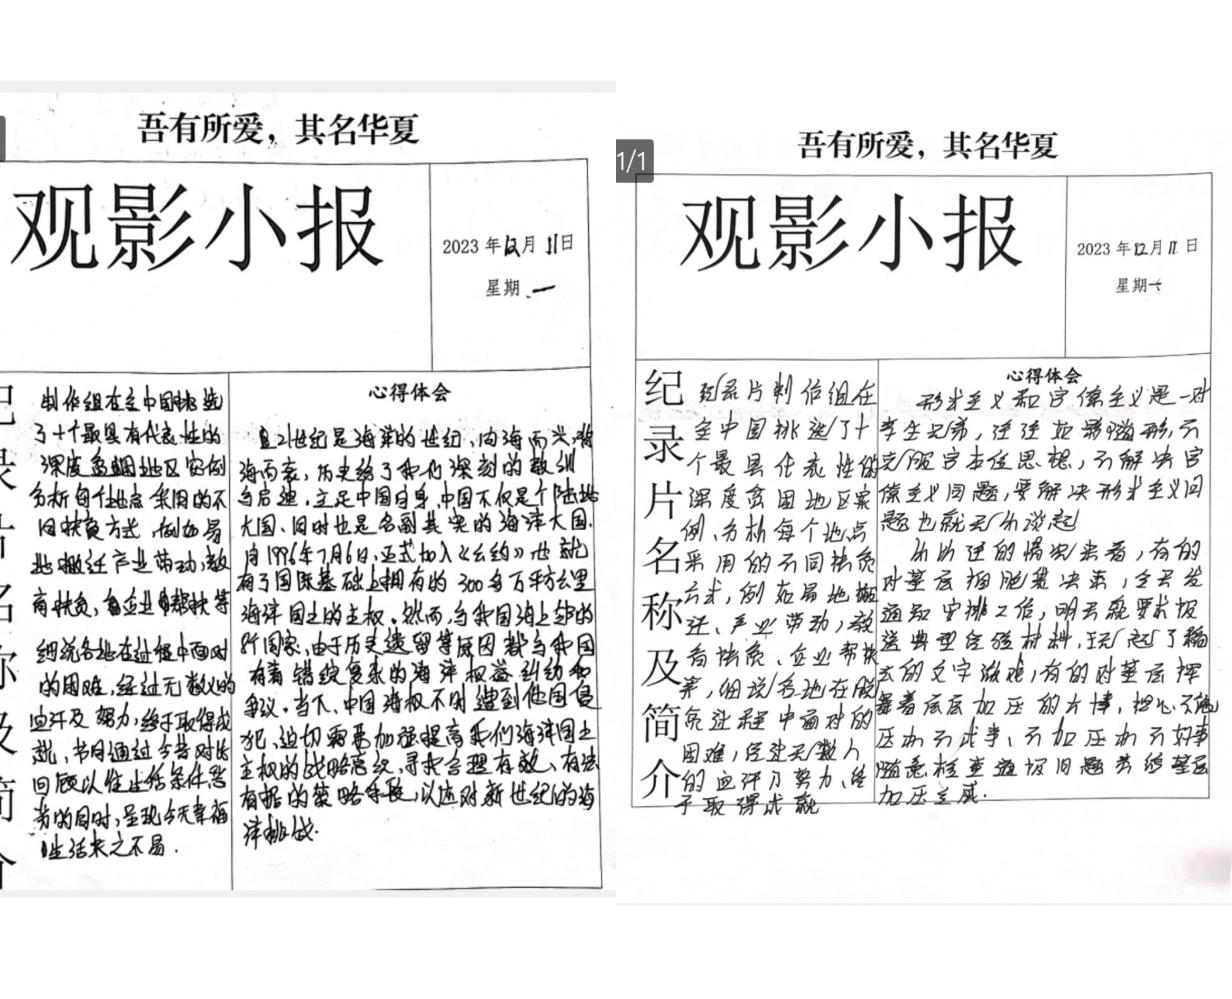 吾有所爱，其名华夏
观影小报
2023 年 12 月 11 日
星期 一
纪录片名称及简介
制作组在全中国挑选
了十个最具有代表性的
深度贫困地区实例
分析每个地点采用的不
同扶贫方式，例如易
地搬迁产业带动，教
育扶贫，企业帮扶等
细说各地在过程中面对
的困难，经过无数人的
血汗及努力，终于取得成
就，节目通过今昔对比
回顾以往生活条件恶
劣的同时，呈现今天幸福
生活来之不易．
心得体会
21世纪是海洋的世纪，向海而兴，背
海而衰，历史给了我们深刻的教训
与启迪．立足中国自身，中国不仅是个陆地
大国．同时也是名副其实的海洋大国．
自1996年7月6日，正式加入《公约》也就
有了国际基础上拥有的 300多万平方公里
海洋国土的主权．然而，与我国海上邻的
8个国家，由于历史遗留等原因都与我国
有着错综复杂的海洋权益纠纷和
争议．当下、中国海权不时遭到他国侵
犯，迫切需要加强提高我们海洋国土
主权的战略意义，寻求合理有效、有法
有据的策略手段，以应对新世纪的海
洋挑战．
1/1
吾有所爱，其名华夏
观影小报
2023 年 12 月 11 日
星期一
纪录片名称及简介
纪录片制作组在
全中国挑选了十
个最具代表性的
深度贫困地区案
例、分析每个地点
采用的不同扶贫
方式，例如易地搬
迁、产业带动，教
育扶贫、企业帮扶
等，细说各地在脱
贫过程中面对的
困难，经过无数人
的血汗乃努力、终
于取得成就
心得体会
形式主义和官僚主义是一对
孪生兄弟，往往如影随形，不
克服官本位思想，不解决官
僚主义问题，要解决形式主义问
题也就无从谈起
从以往的情况来看，有的
对基层拍脑袋决策，全要发
通知安排工作，明天就要求报
送典型经验材料，玩起了稿
去的文字游戏，有的对基层挥
舞着层层加压的大棒，担心不施
压办不成事、不加压办不好事
随意检查通报问题去给基层
加压立威．